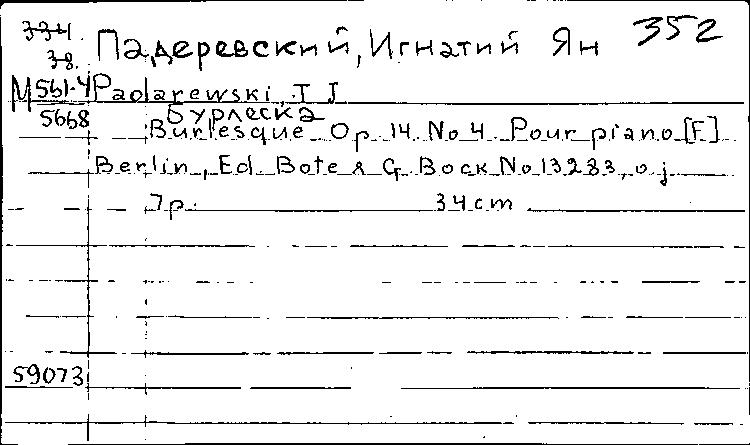 334. 352
38. Падеревский, Игнатий Ян
M561-4 Padarewski, I J
5668 Бурлеска
Burlesque Op 14 No 4 Pour piano [F]
Berlin, Ed. Bote & G Bock No 13283, o j
7p. 34cm
59073